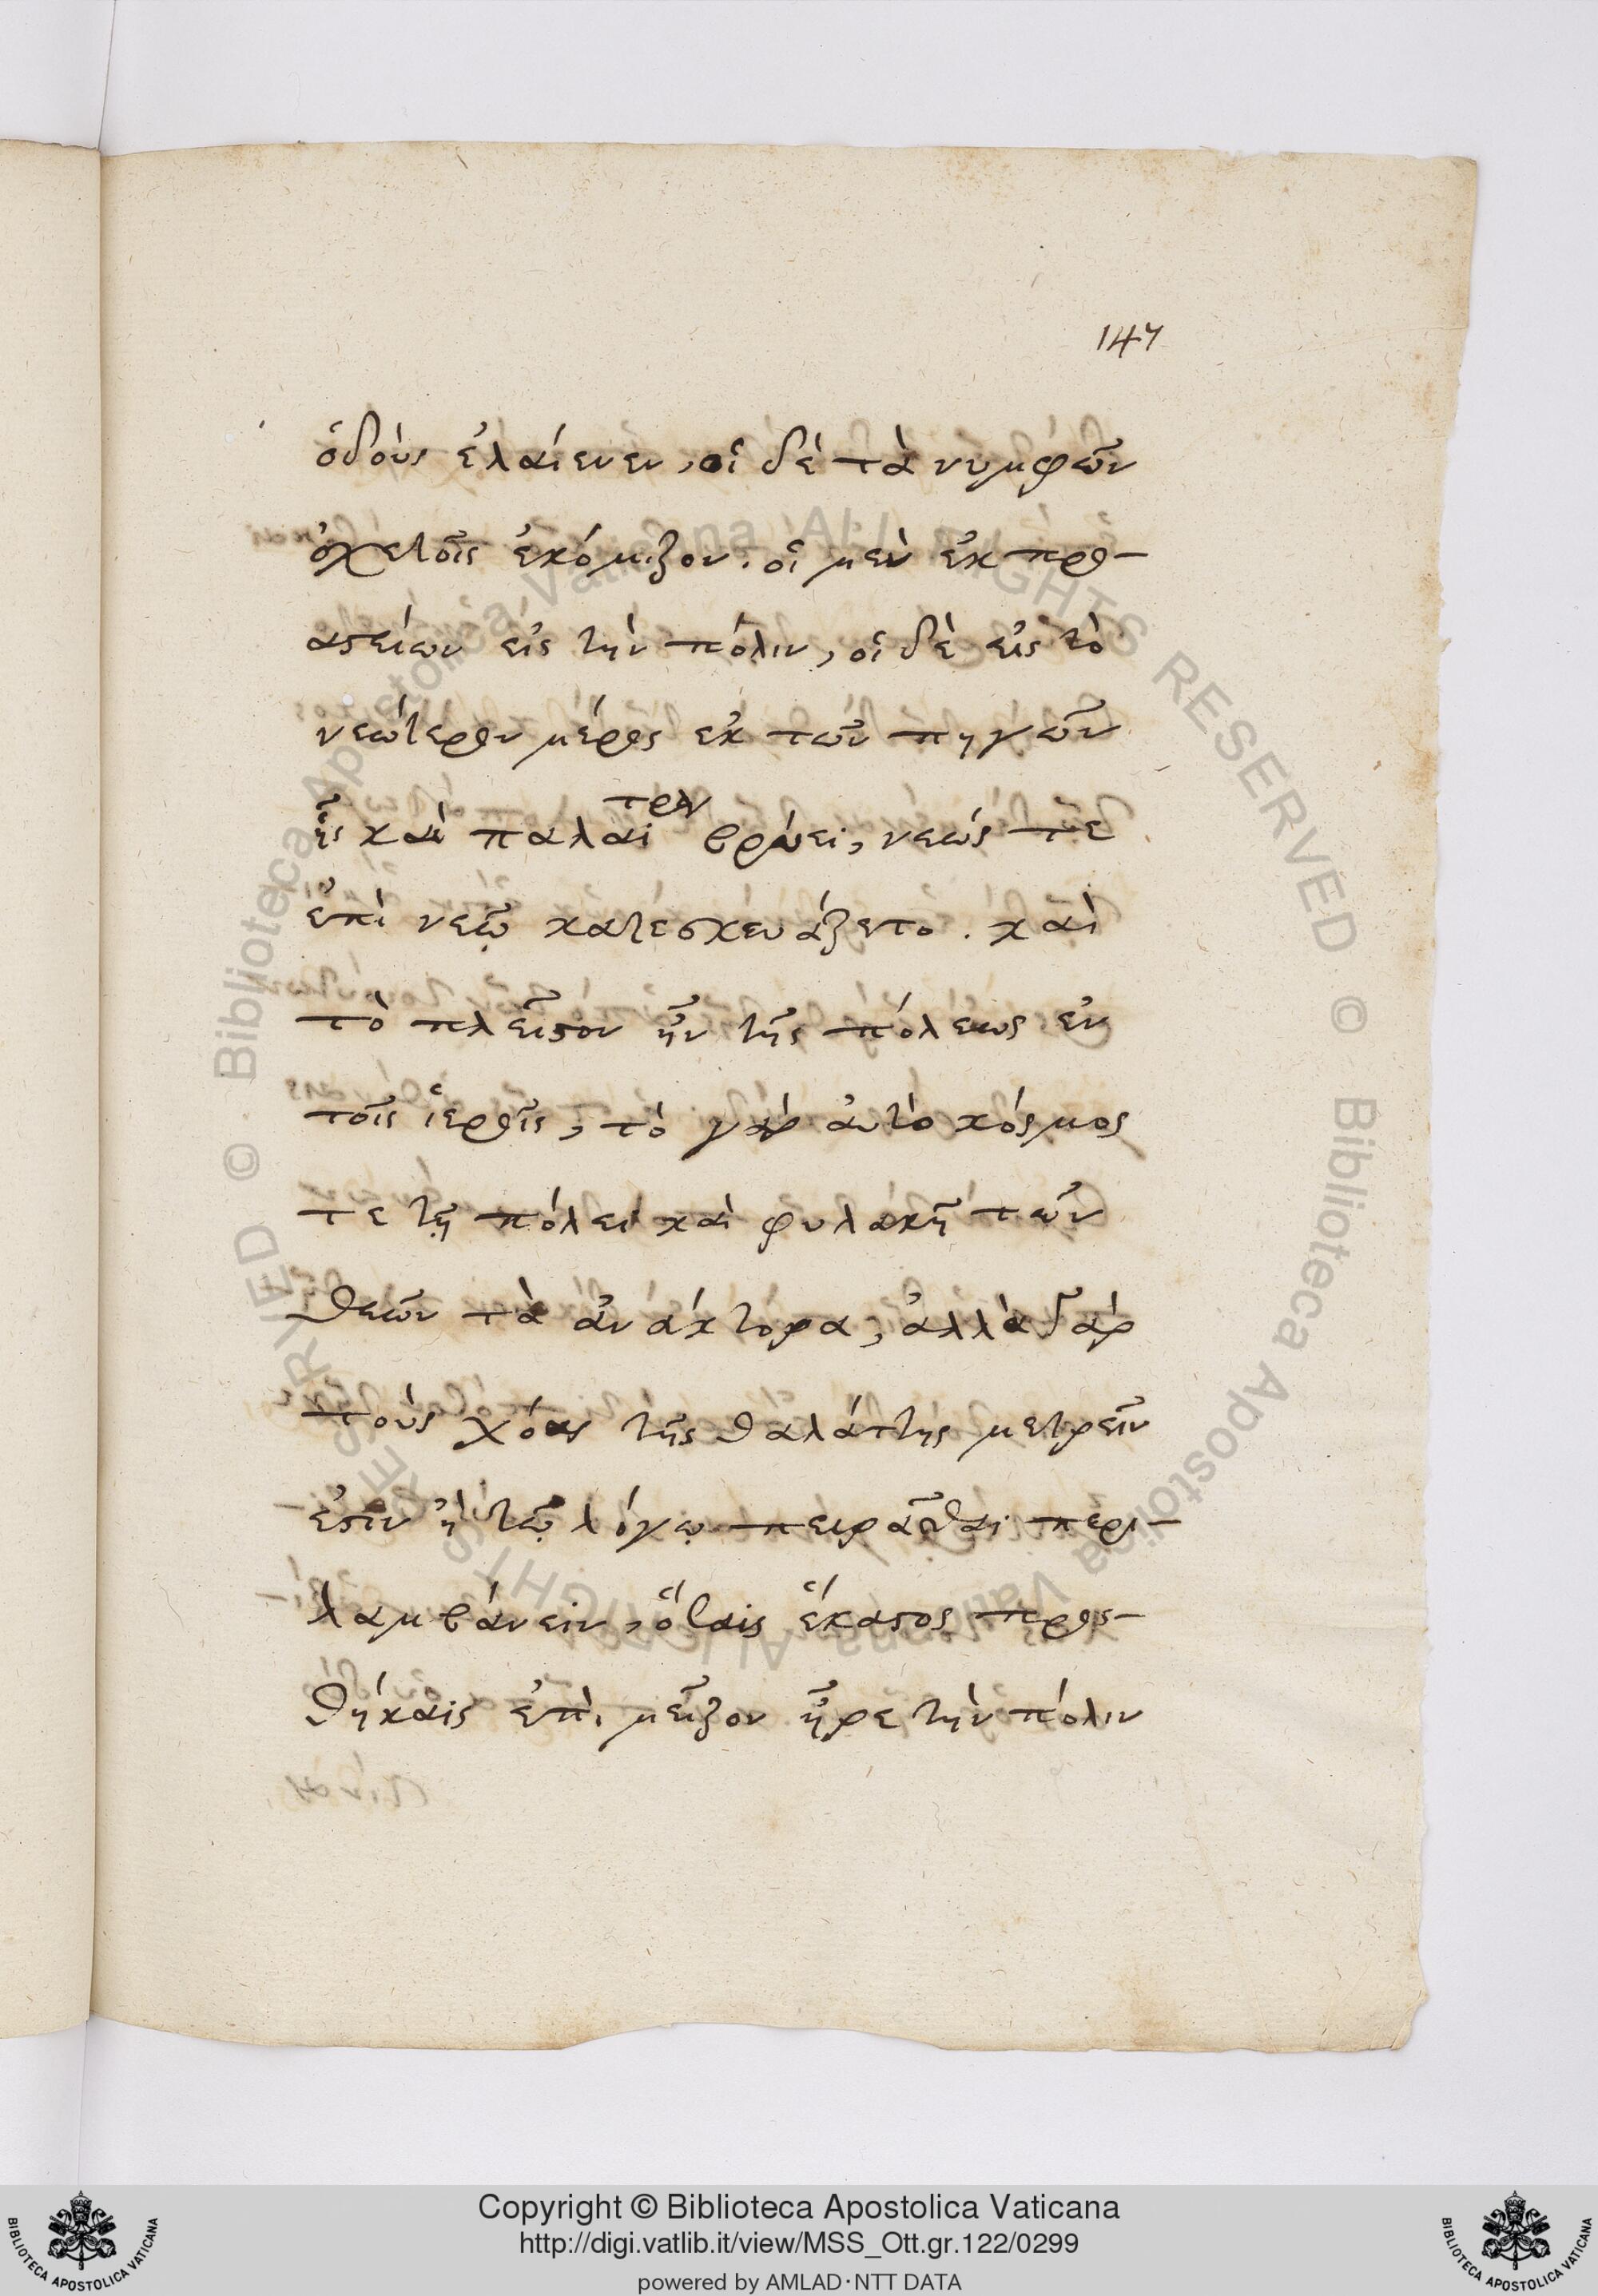 147
ὁδοὺς ἐλαίενεν, οἱ δὲ τὰ νυμφῶν
ὀχετοῖς ἐκόμιζον. οἱ μὲν ἐκ προ-
αστείων εἰς τὴν πόλιν, οἱ δὲ εἰς τὸ
νεώτερον μέρος ἐκ τῶν πηγῶν
ἧς καὶ παλαιτρν βρύει, νεώς τε
ἐπὶ νεῷ κατεσκευάζετο. καὶ
τὸ πλεῖστον ἦν τῆς πόλεως ἐν
τοῖς ἱεροῖς, τὸ γὰρ αὐτὸ κόσμος
τε τῇ πόλει καὶ φυλακὴ τῶν
θεῶν τὰ ἀνάκτορα, ἀλλὰ γὰρ
τοὺς χόας τῆς θαλάττης μετρεῖν
ἐστιν ἢ τῷ λόγῳ πειρᾶσθαι περι-
λαμβάνειν, ὅσαις ἕκαστος προς-
θήκαις ἐπὶ μεῖζον ἦρε τὴν πόλιν
© Biblioteca Apostolica Vaticana ALL RIGHTS RESERVED © Biblioteca Apostolica Vaticana ALL RIGHTS RESERVED
Copyright © Biblioteca Apostolica Vaticana
http://digi.vatlib.it/view/MSS_Ott.gr.122/0299
powered by AMLAD·NTT DATA
BIBLIOTECA APOSTOLICA VATICANA
BIBLIOTECA APOSTOLICA VATICANA